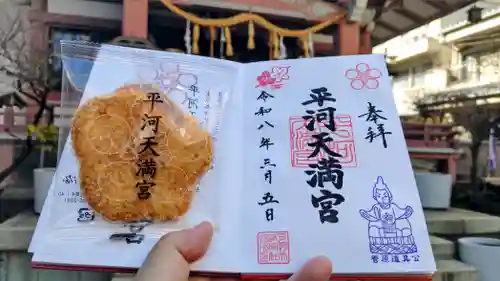 奉拝
平河天満宮
令和八年三月五日
菅原道真公
平河天満宮